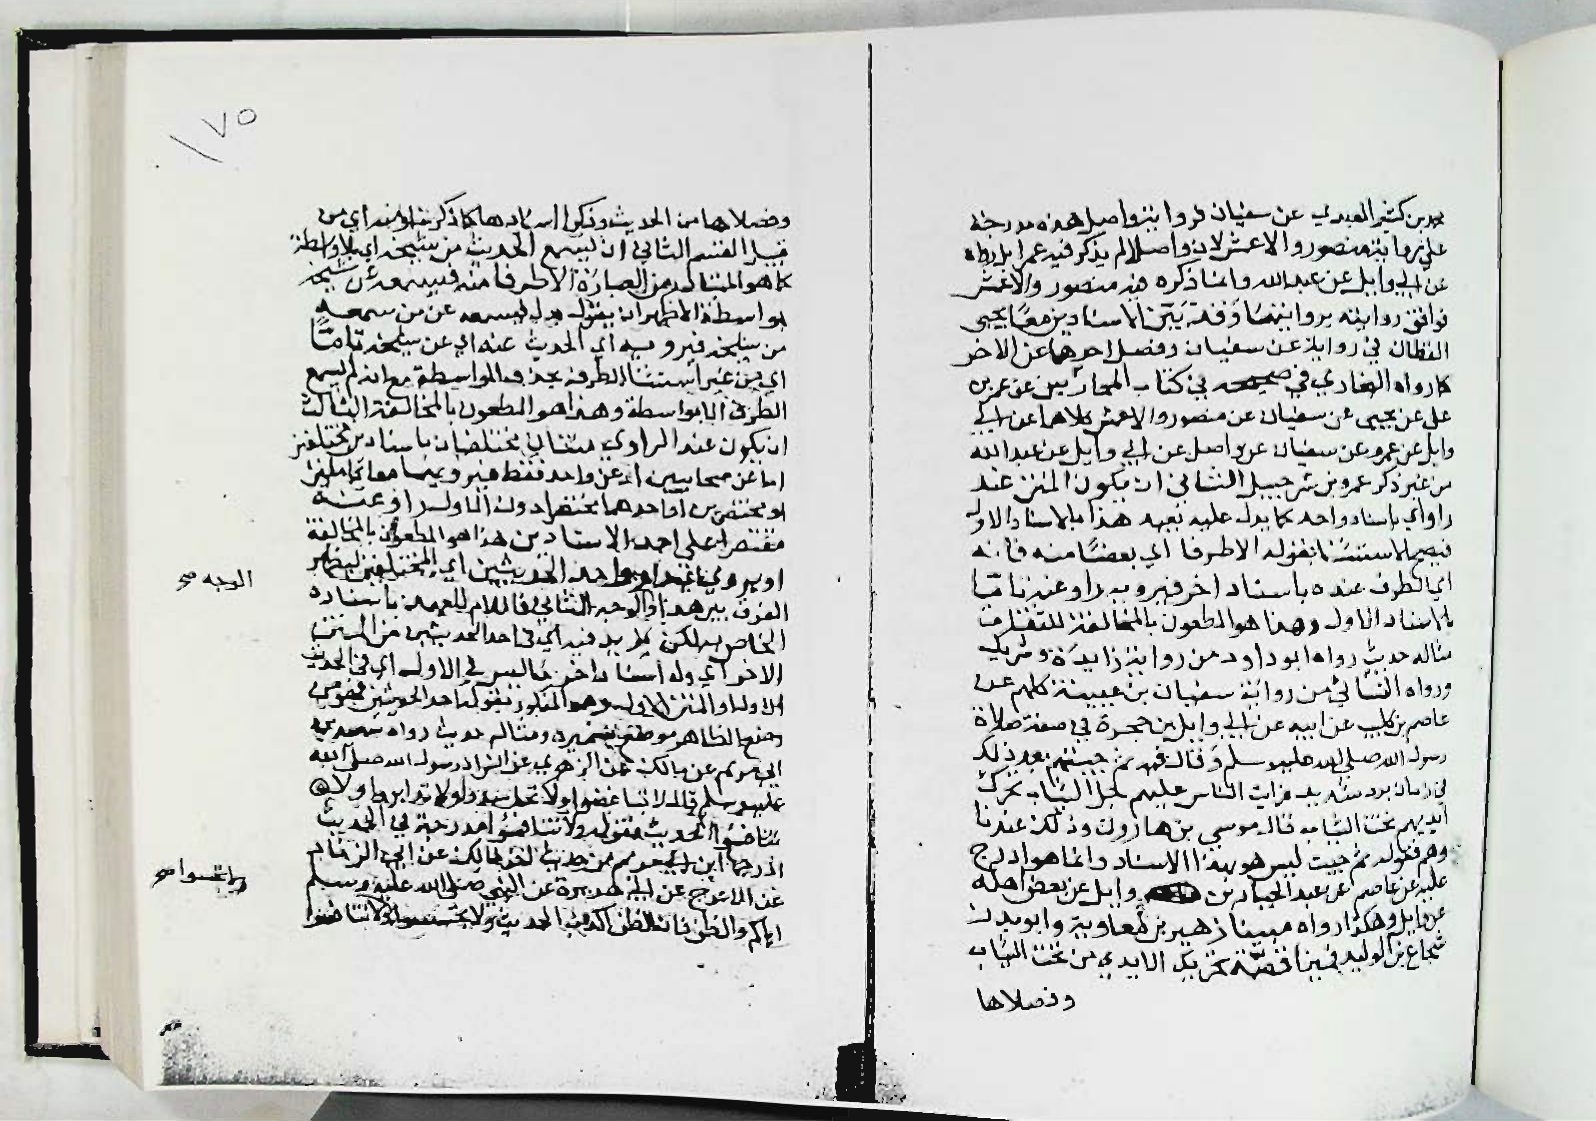 محمد بن كثير العبدي عن سفيان فرواية واصل هذه مدرجة
على رواية منصور والاعمش لان واصلا لم يذكر فيه عمرا بل رواه
عن ابي وايل عن عبد الله وانما ذكره فيه منصور والاعمش
فوافق روايته بروايتهما وقد بين الاسنادين معا يحيى
القطان في رواية عن سفيان وفصل احدهما عن الاخر
كما رواه البخاري في صحيحه في كتاب المحاربين عن عمرو بن
علي عن يحيى عن سفيان عن منصور والاعمش كلاهما عن ابي
وايل عن عمرو عن سفيان عن واصل عن ابي وايل عن عبد الله
من غير ذكر عمرو بن شرحبيل الثاني ان يكون المتن عند
راو اي باسناد واحد كما يدل عليه بعيد هذا بالاسناد الاول
فيصح الاستثنا بقوله الا طرفا اي بعضا منه فانه
اي الطرف عنده باسناد اخر فيرويه راو عنه تاما
بالاسناد الاول وهذا هو المطعون بالمخالفة للتفارق
مثاله حديث رواه ابو داود من رواية زايدة وشريك
ورواه النسائي من رواية سفيان بن عيينة كلهم عن
عاصم بن كليب عن ابيه عن ابي وايل بن حجرة في صفة صلاة
رسول الله صلى الله عليه وسلم وقال فيه ثم جيتهم بعد ذلك
في زمان برد شديد فرايت الناس عليهم جل الثياب تحرك
ايديهم تحت الثياب قال موسى بن هارون وذلك عندنا
وهم فقوله ثم جيت ليس هو بهذا الاسناد وانما هو ادرج
عليه عن عاصم عن عبد الجبار بن وايل عن بعض اهله
عن وايل وهكذا رواه مبينا زهير بن معاوية وابو بدر
شجاع بن الوليد فميزا قصة تحريك الايدي من تحت الثياب
وفصلاها
١٧٥
وفصلاها من الحديث وذكرا اسنادها كما ذكرناه منه اي من
قبيل القسم الثاني ان يسمع الحديث من شيخه اي بلا واسطة
كما هو المتبادر من العبارة الا طرفا منه فيسمعه عن شيخه
بواسطة الاظهر ان يقول بدل فيسمعه عن من سمعه
من شيخه فيرويه اي الحديث عنه اي عن شيخه تاما
اي من غير استثنا الطرف بحذف الواسطة مع انه لم يسمع
الطرف الا بواسطة وهذا هو المطعون بالمخالفة الثالث
ان يكون عند الراوي متنان مختلفان باسنادين مختلفين
اما عن صحابيين او عن واحد فقط فيرويهما معا تاما
او مختصرين او احدهما مختصرا دون الاول راو عنه
مقتصرا على احد الاسنادين هذا هو المطعون بالمخالفة
او يروي احد الحديثين اي المختلفين ليظهر
الفرق بين هذا والوجه الثاني فاللام للعهد باسناده
الخاص به لكن يزيد فيه اي في احد الحديثين من المتن
الاخر اي وله اسناد اخر ما ليس في الاول اي في الحديث
الاول او المتن الاول وهو المذكور بقوله احد الحديثين فهو من
وضع الظاهر موضع ضميره ومثاله حديث رواه سعيد بن
ابي مريم عن مالك عن الزهري عن انس ان رسول الله صلى الله
عليه وسلم قال لا تباغضوا ولا تحاسدوا ولا تدابروا ولا
تنافسوا الحديث فقوله ولا تنافسوا مدرجة في الحديث
ادرجها ابن ابي مريم من حديث اخر لمالك عن ابي الزناد
عن الاعرج عن ابي هريرة عن النبي صلى الله عليه وسلم
اياكم والظن فان الظن اكذب الحديث ولا تجسسوا ولا تنافسوا
الوجه صح
ولا تحسسوا صح